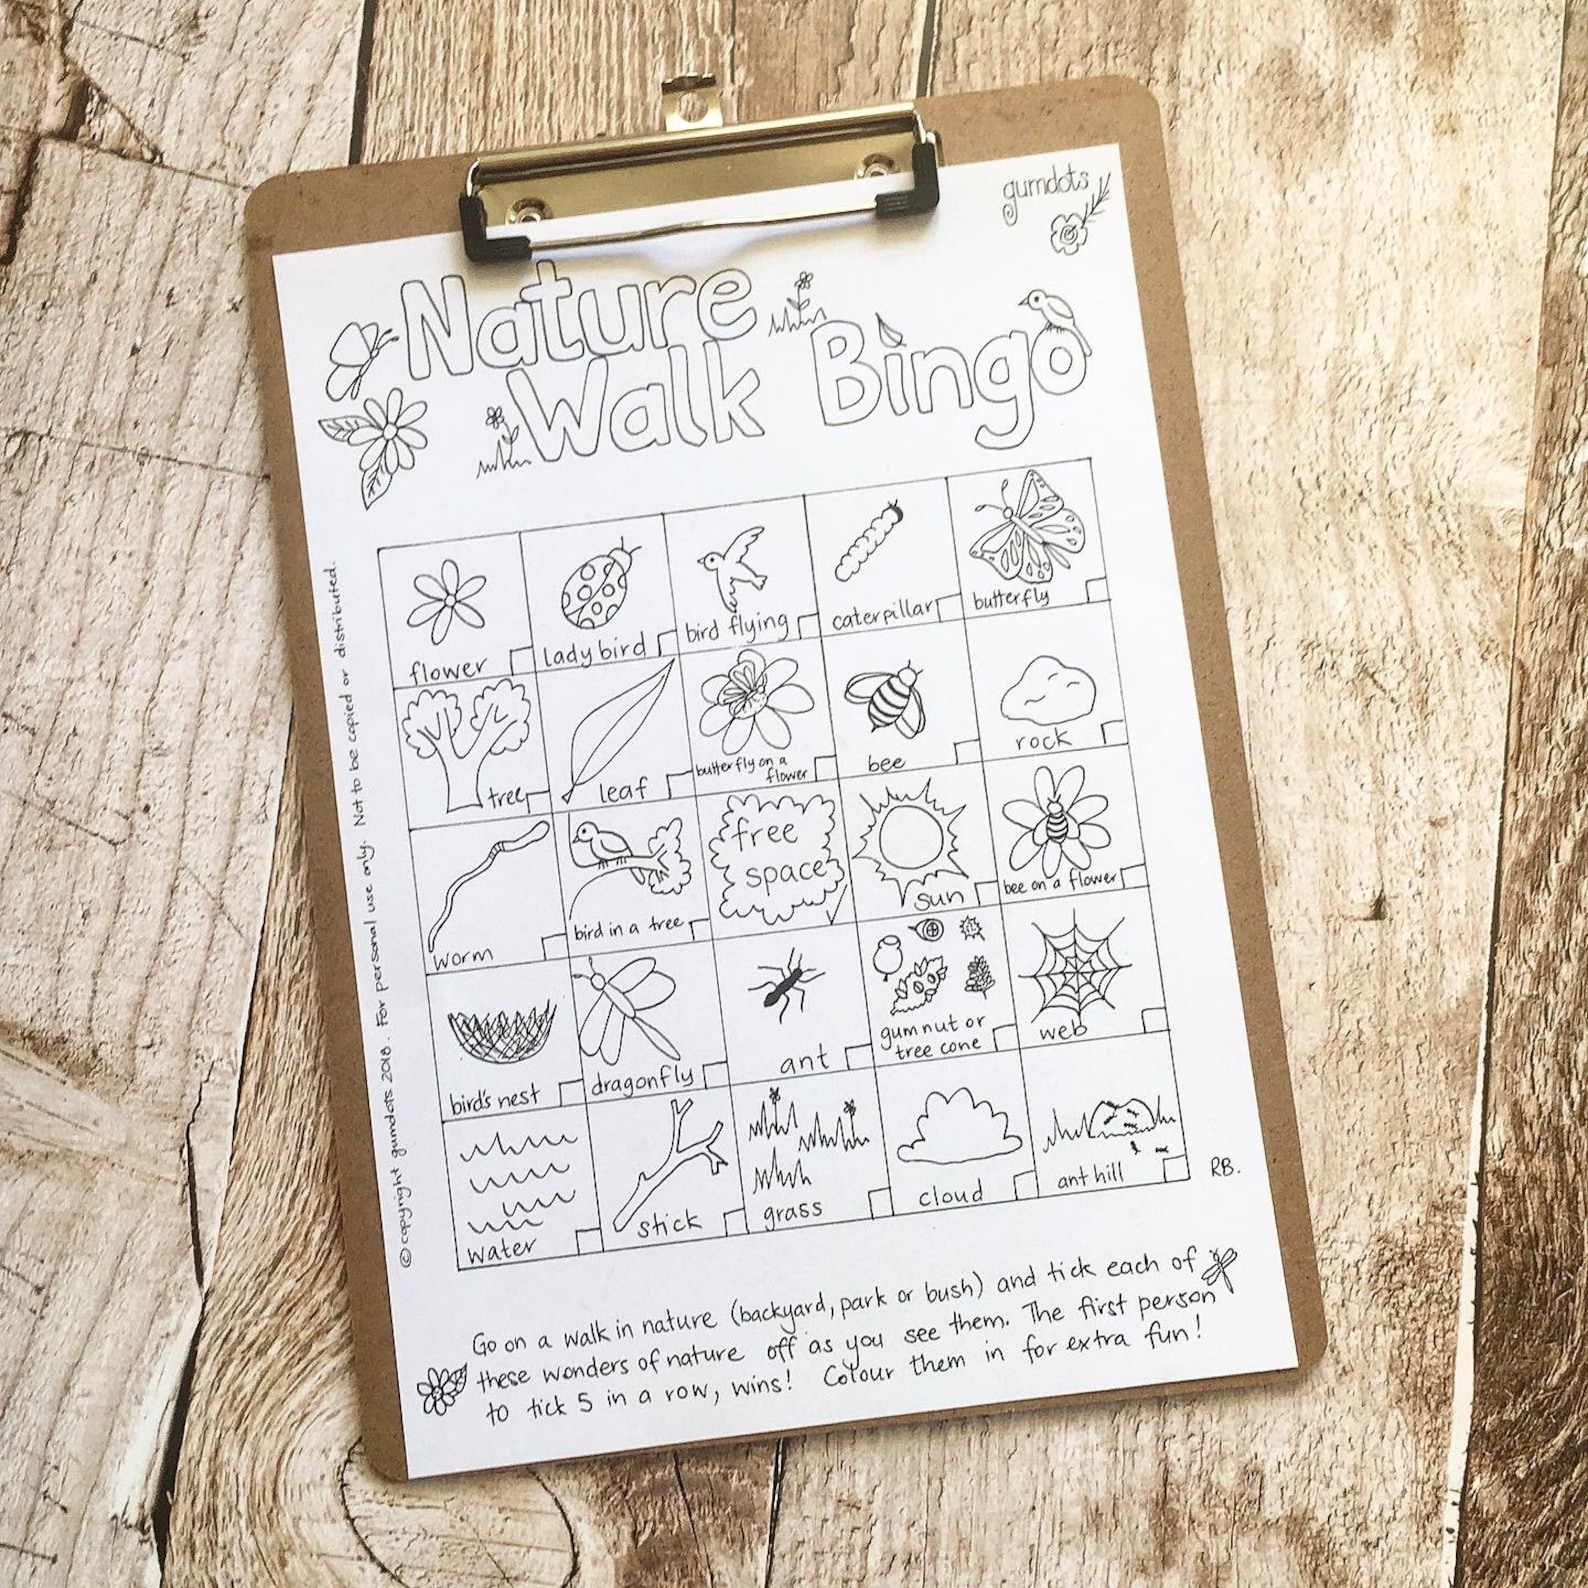 gumdots
Nature
Walk Bingo
flower
lady bird
bird flying
caterpillar
butterfly
tree
leaf
butterfly on a
flower
bee
rock
worm
bird in a tree
free
space
sun
bee on a flower
bird's nest
dragonfly
ant
gum nut or
tree cone
web
water
stick
grass
cloud
ant hill
RB.
© copyright gumdots 2018. For personal use only. Not to be copied or distributed.
Go on a walk in nature (backyard, park or bush) and tick each of
these wonders of nature off as you see them. The first person
to tick 5 in a row, wins! Colour them in for extra fun!